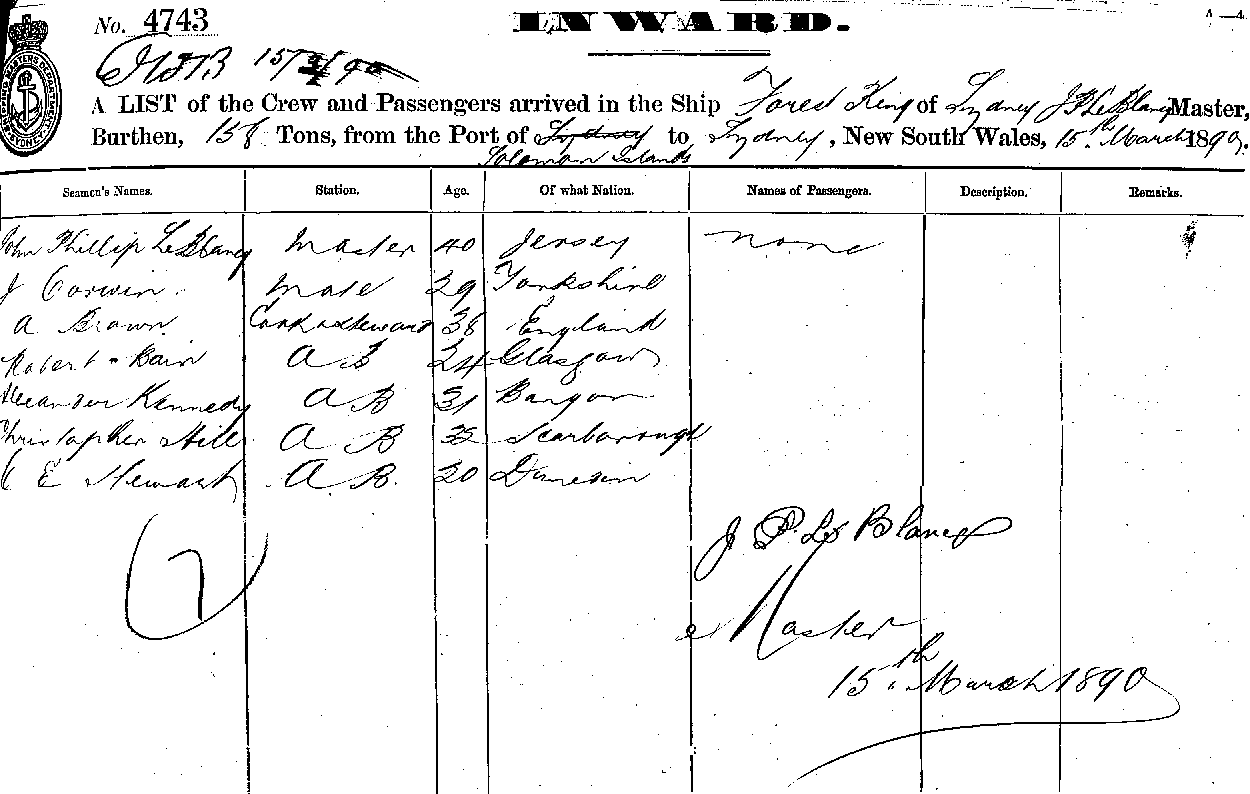 No. 4743
INWARD.
15/3/90
A LIST of the Crew and Passengers arrived in the Ship Forest King of Sydney J P Le Blancq Master,
Burthen, 158 Tons, from the Port of Sydney to Sydney, New South Wales, 15th March 1890.
Solomon Islands
Seamen's Names. Station. Age. Of what Nation. Names of Passengers. Description. Remarks.
John Phillip Le Blancq Master 40 Jersey none
J Corwin Mate 29 Yorkshire
A Brown Cook & Steward 38 England
Robert Bain A B 24 Glasgow
Alexander Kennedy A B 31 Bangor
Christopher Hill A B Scarborough
C E Stewart A.B. 20 Dunedin
7
J P. Le Blancq
Master
15th March 1890